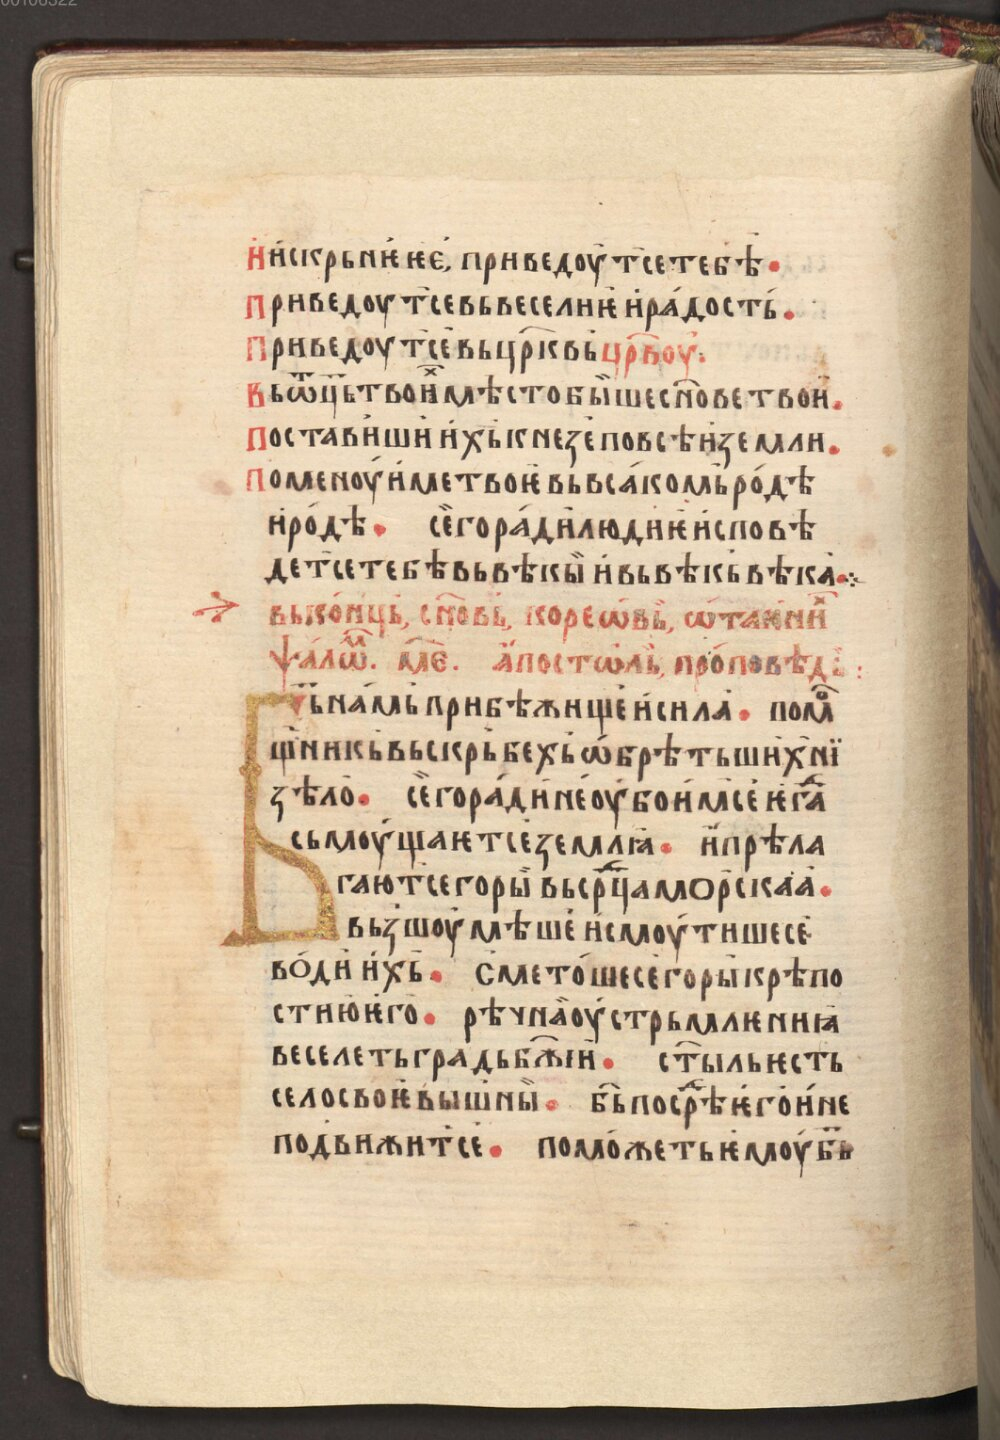 00106322
И искрьнѥ ѥѥ, приведоут се тебѣ •
Приведоут се вь веселиѥ и радость •
Приведоут се вь црквь црвоу :
Вь ѿць твоих мѣсто бише снове твои •
Поставиши ихь кнезе по всѣи земли •
Помену име твоѥ вь всакомь родѣ
и родѣ • сего ради людиѥ исповѣ
дет се тебѣ вь вѣкы и вь вѣкь вѣка •:
вь коньць, сновь, кореѡвь, ѡ таиних
ѱалѡм. м҃е. апостѡль, проповѣдь :
Бь намь прибѣжище и сила • помо
щникь вь скрьбехь ѡбрѣтьших ні
ѕѣло • сего ради не оубоим се ѥгда
сьмоущаѥт се землꙗ • и прѣла
гают се горы вь срдца морскаа •
вьзшоумѣше и смоутише се
води ихь • сметоше се горы крѣпо
стию ѥго • рѣчнаа оустрьмлѥниꙗ
веселеть градь бжіи • стыль ѥсть
село своѥ вышны • бь посрѣ ѥго и не
подвижит се • поможеть ѥмоу бь